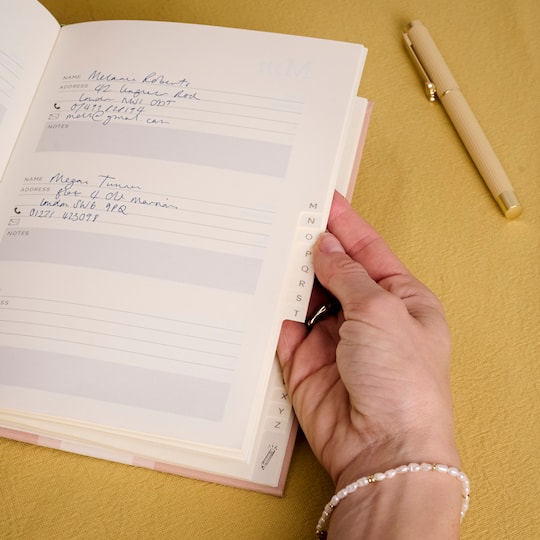 NAME Melanie Roberts
ADDRESS 42 Road
London NW1
07499 828134
mell@gmail.com
NOTES
NAME Megan Turner
ADDRESS flat 4 Old
London SW6 9PQ
01271 423098
NOTES
NOTES
M
N
O
P
Q
R
S
T
X
Y
Z